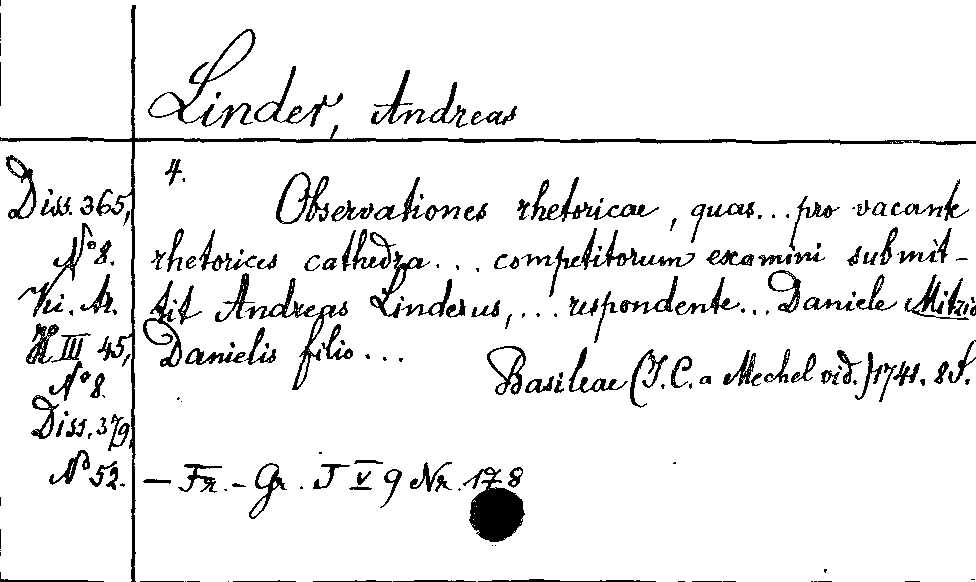 Linder, Andreas
4.
Diss. 365,
N° 8.
Ki. Ar.
H III 45,
N° 8.
Diss. 379,
N° 52.
Observationes rhetoricae, quas... pro vacante
rhetorices cathedra... competitorum examini submit-
tit Andreas Linderus,... respondente... Daniele Mitzio
Danielis filio...
Basileae (J. C. a Mechel vid.) 1741. 8 S.
— Fr.-Gr. J V 9 Nr. 178